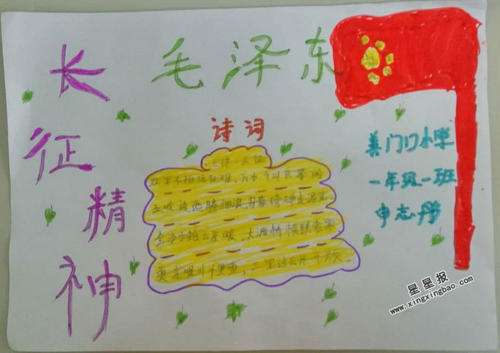 长征精神
毛泽东
诗词
七律 长征
红军不怕远征难,万水千山只等闲
五岭逶迤腾细浪,乌蒙磅礴走泥丸
金沙水拍云崖暖,大渡桥横铁索寒
更喜岷山千里雪,三军过后尽开颜
门口小学
一年级一班
申志
星星报
www.xingxingbao.com